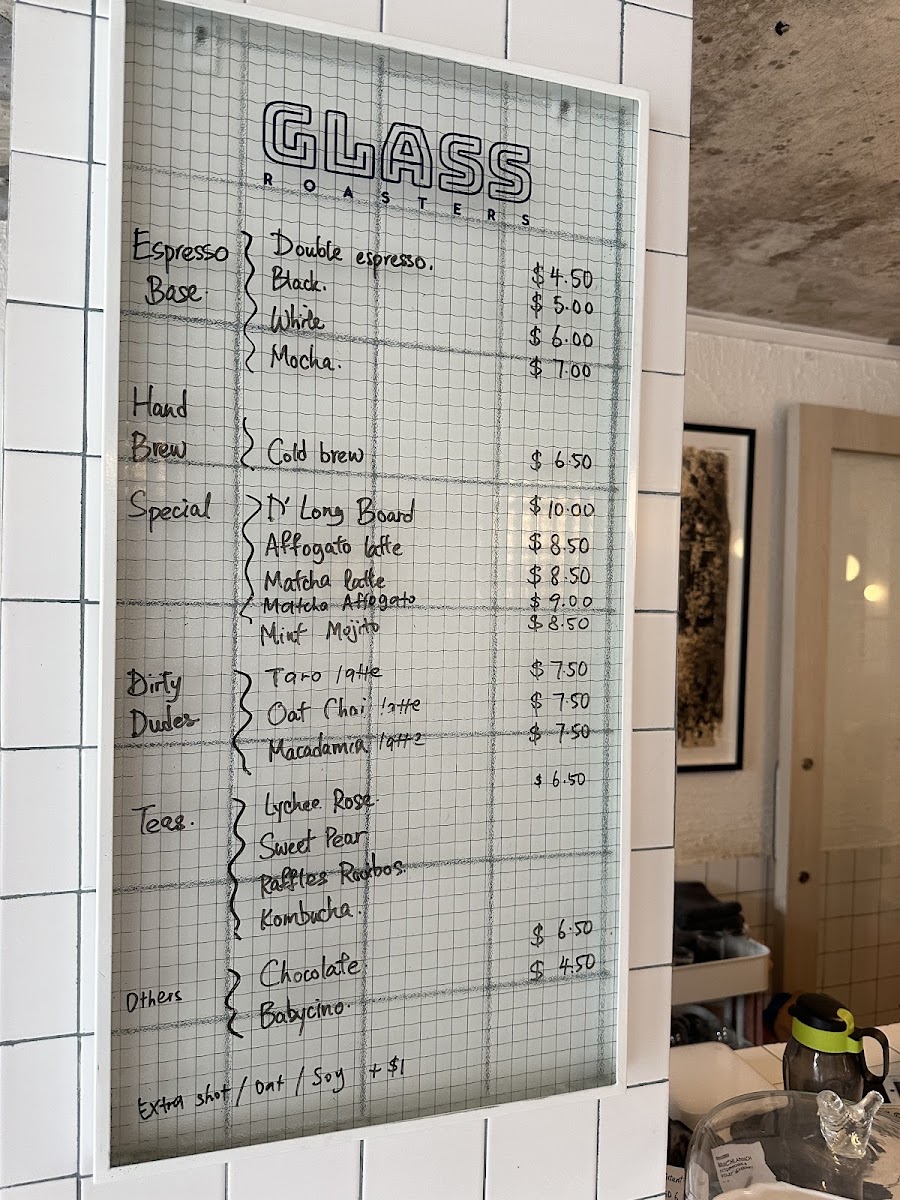 GLASS
ROASTERS
Espresso Base.
Double espresso. $4.50
Black. $5.00
White $6.00
Mocha. $7.00
Hand Brew
Cold brew $6.50
Special
D' Long Board $10.00
Affogato latte $8.50
Matcha latte $8.50
Matcha Affogato $9.00
Mint Mojito $8.50
Dirty Dudes
Taro latte $7.50
Oat Chai latte $7.50
Macadamia latte $7.50
Teas. $6.50
Lychee Rose.
Sweet Pear
Raffles Rooibos.
Kombucha.
Others
Chocolate $6.50
Babycino. $4.50
Extra shot / Oat / Soy +$1